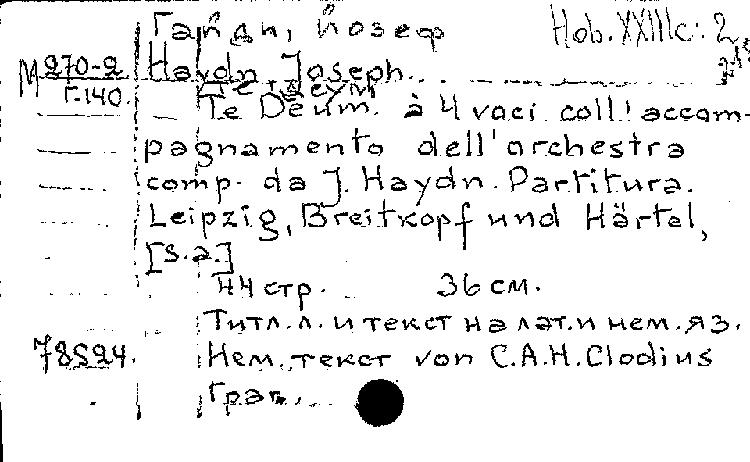 Гайдн, Йозеф Hob. XXIIIc: 2
M 270-2 Haydn, Joseph.
Г-140. Те деум
Te Deum. à 4 voci coll'accom-
pagnamento dell'orchestra
comp. da J. Haydn. Partitura.
Leipzig, Breitkopf und Härtel,
[s.a.]
44 стр. 36 см.
Титл.л. и текст на лат. и нем. яз.
78524. Нем. текст von C.A.H. Clodius
Грав.